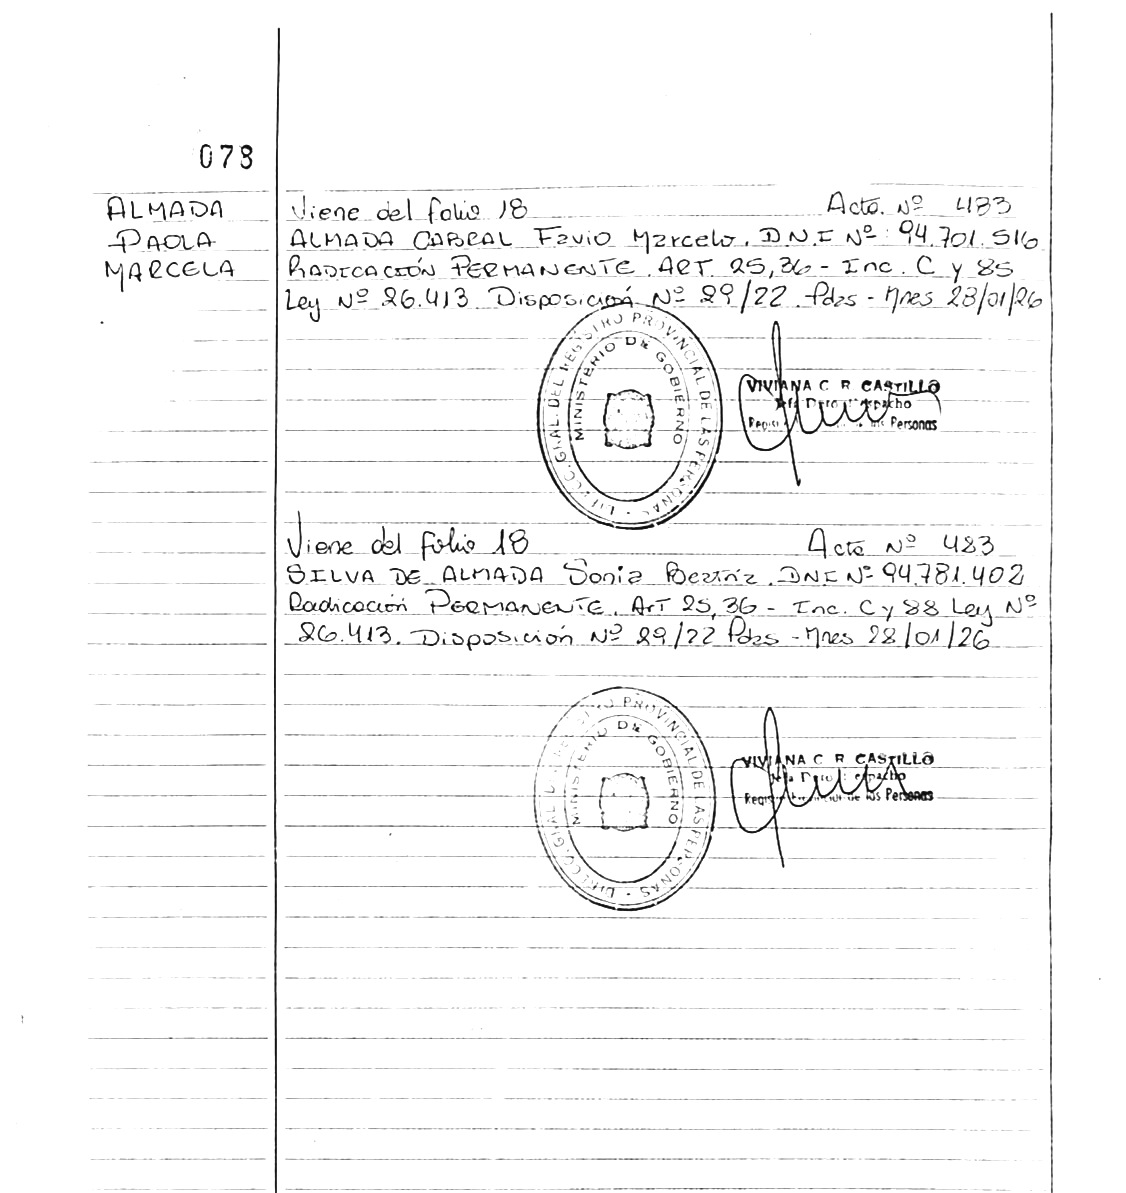 078
ALMADA
PAOLA
MARCELA
Viene del folio 18 Acta. Nº 483
ALMADA CABRAL Favio Marcelo. D.N.I Nº 94.701.516
RADICACIÓN PERMANENTE. ART 25,36 - Inc. C y 85
Ley Nº 26.413. Disposición Nº 29/22. Pdas - Mnes 28/01/26
DIRECC. GRAL. DEL REGISTRO PROVINCIAL DE LAS PERSONAS
MINISTERIO DE GOBIERNO
VIVIANA C R CASTILLO
Personas
Viene del folio 18 Acta Nº 483
SILVA DE ALMADA Sonia Beatriz. DNI Nº 94.781.402
Radicación PERMANENTE. ArT 25,36 - Inc. C y 88 Ley Nº
26.413. Disposición Nº 29/22 Pdas - Mnes 28/01/26
DIRECC. GRAL. DEL REGISTRO PROVINCIAL DE LAS PERSONAS
MINISTERIO DE GOBIERNO
VIVIANA C R CASTILLO
de las Personas